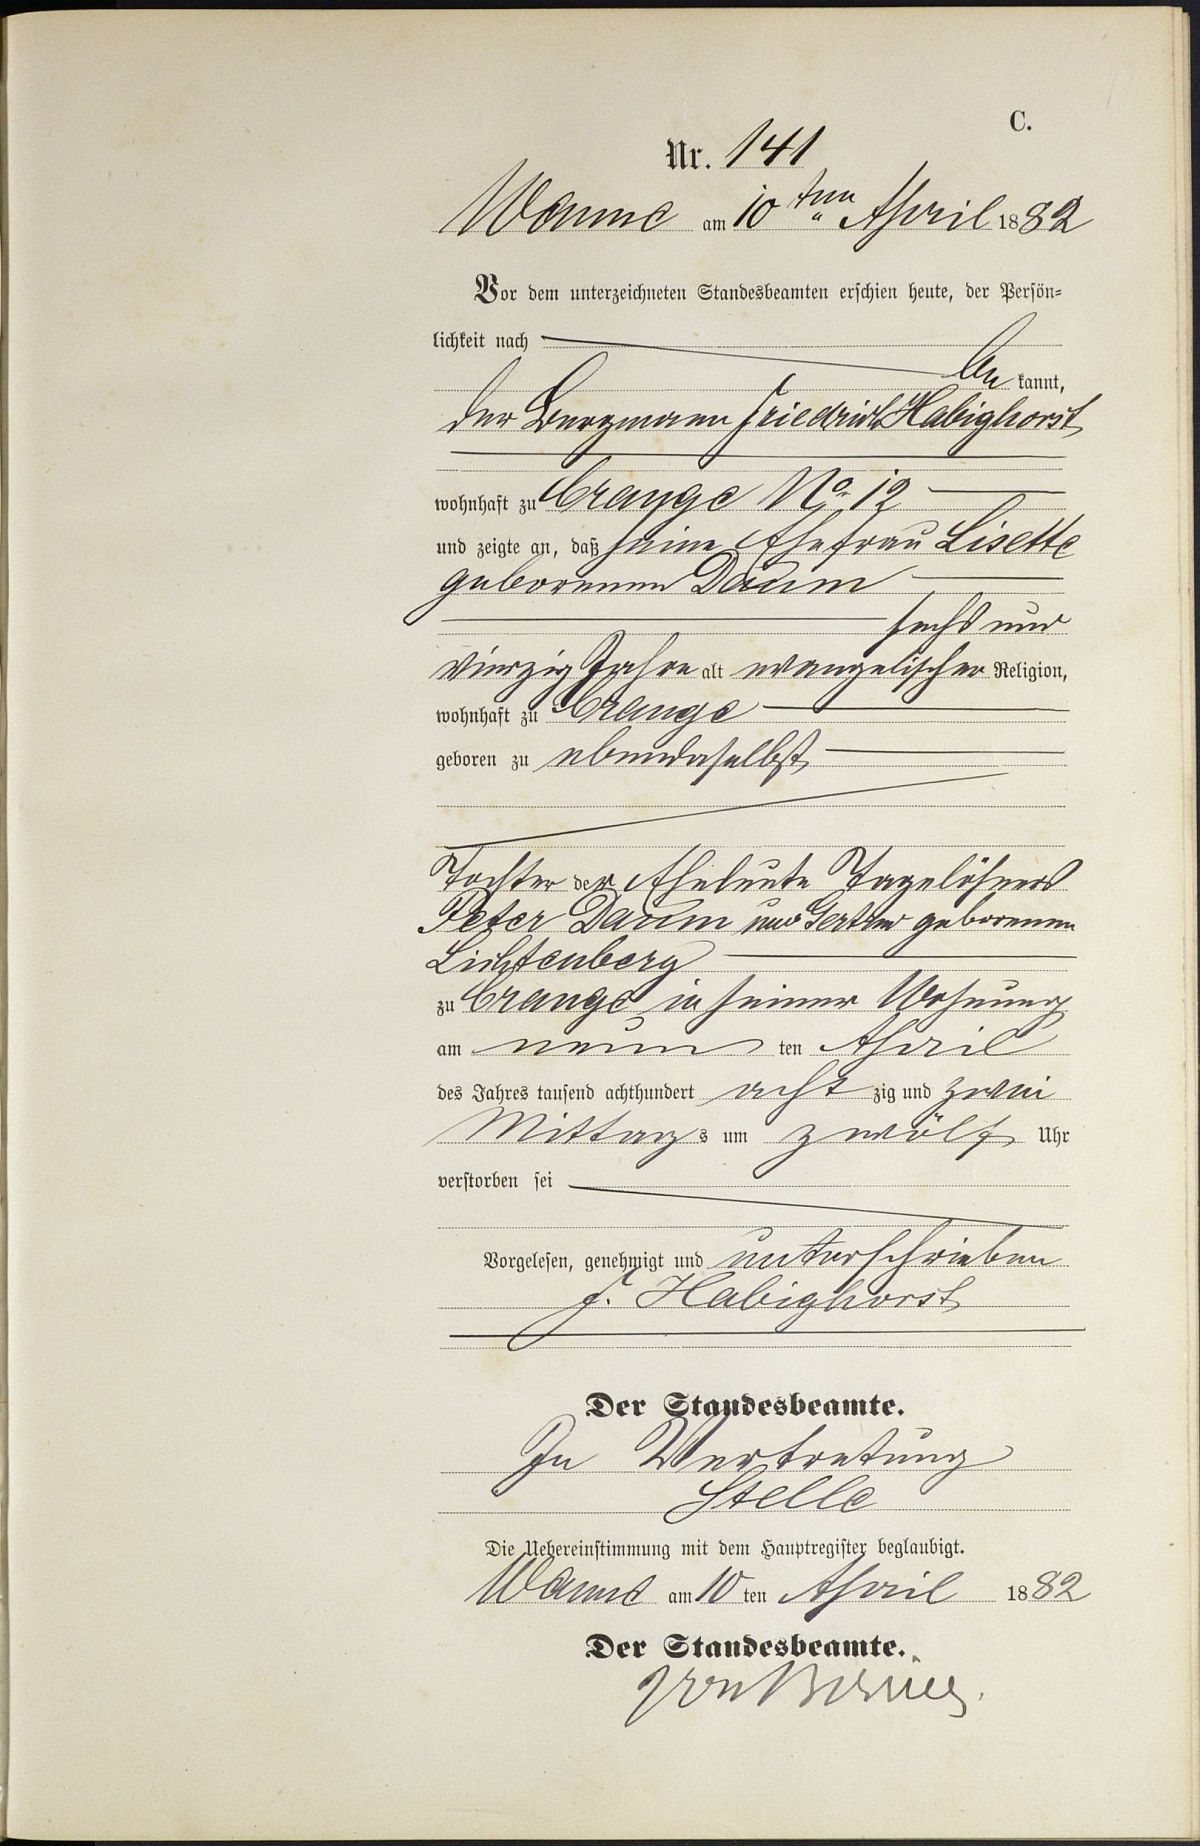 C.
Nr. 141
Wanne am 10 ten April 1882
Vor dem unterzeichneten Standesbeamten erschien heute, der Persön=
lichkeit nach
be kannt,
der Bergmann Friedrich Habighorst
wohnhaft zu Crange No 12
und zeigte an, daß seine Ehefrau Lisette
geborenen Daum
sechs und
vierzig Jahre alt evangelischer Religion,
wohnhaft zu Crange
geboren zu ebendaselbst
Tochter der Eheleute Tagelöhners
Peter Daum und Gertrud geborenen
Lichtenberg
zu Crange in seiner Wohnung
am neun ten April
des Jahres tausend achthundert acht zig und zwei
Mittags um zwölf Uhr
verstorben sei
Vorgelesen, genehmigt und unterschrieben
F. Habighorst
Der Standesbeamte.
In Vertretung
Stelle
Die Uebereinstimmung mit dem Hauptregister beglaubigt.
Wanne am 10 ten April 1882
Der Standesbeamte.
von